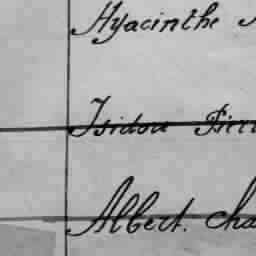 Hyacinthe
Isidore
Albert. Cha